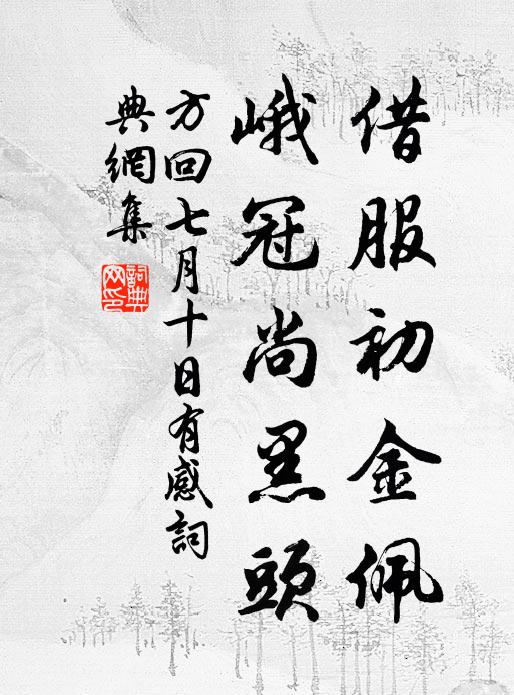 借服初金佩
峨冠尚黑頭
方回七月十日有感詞
典網集
詞典
网印